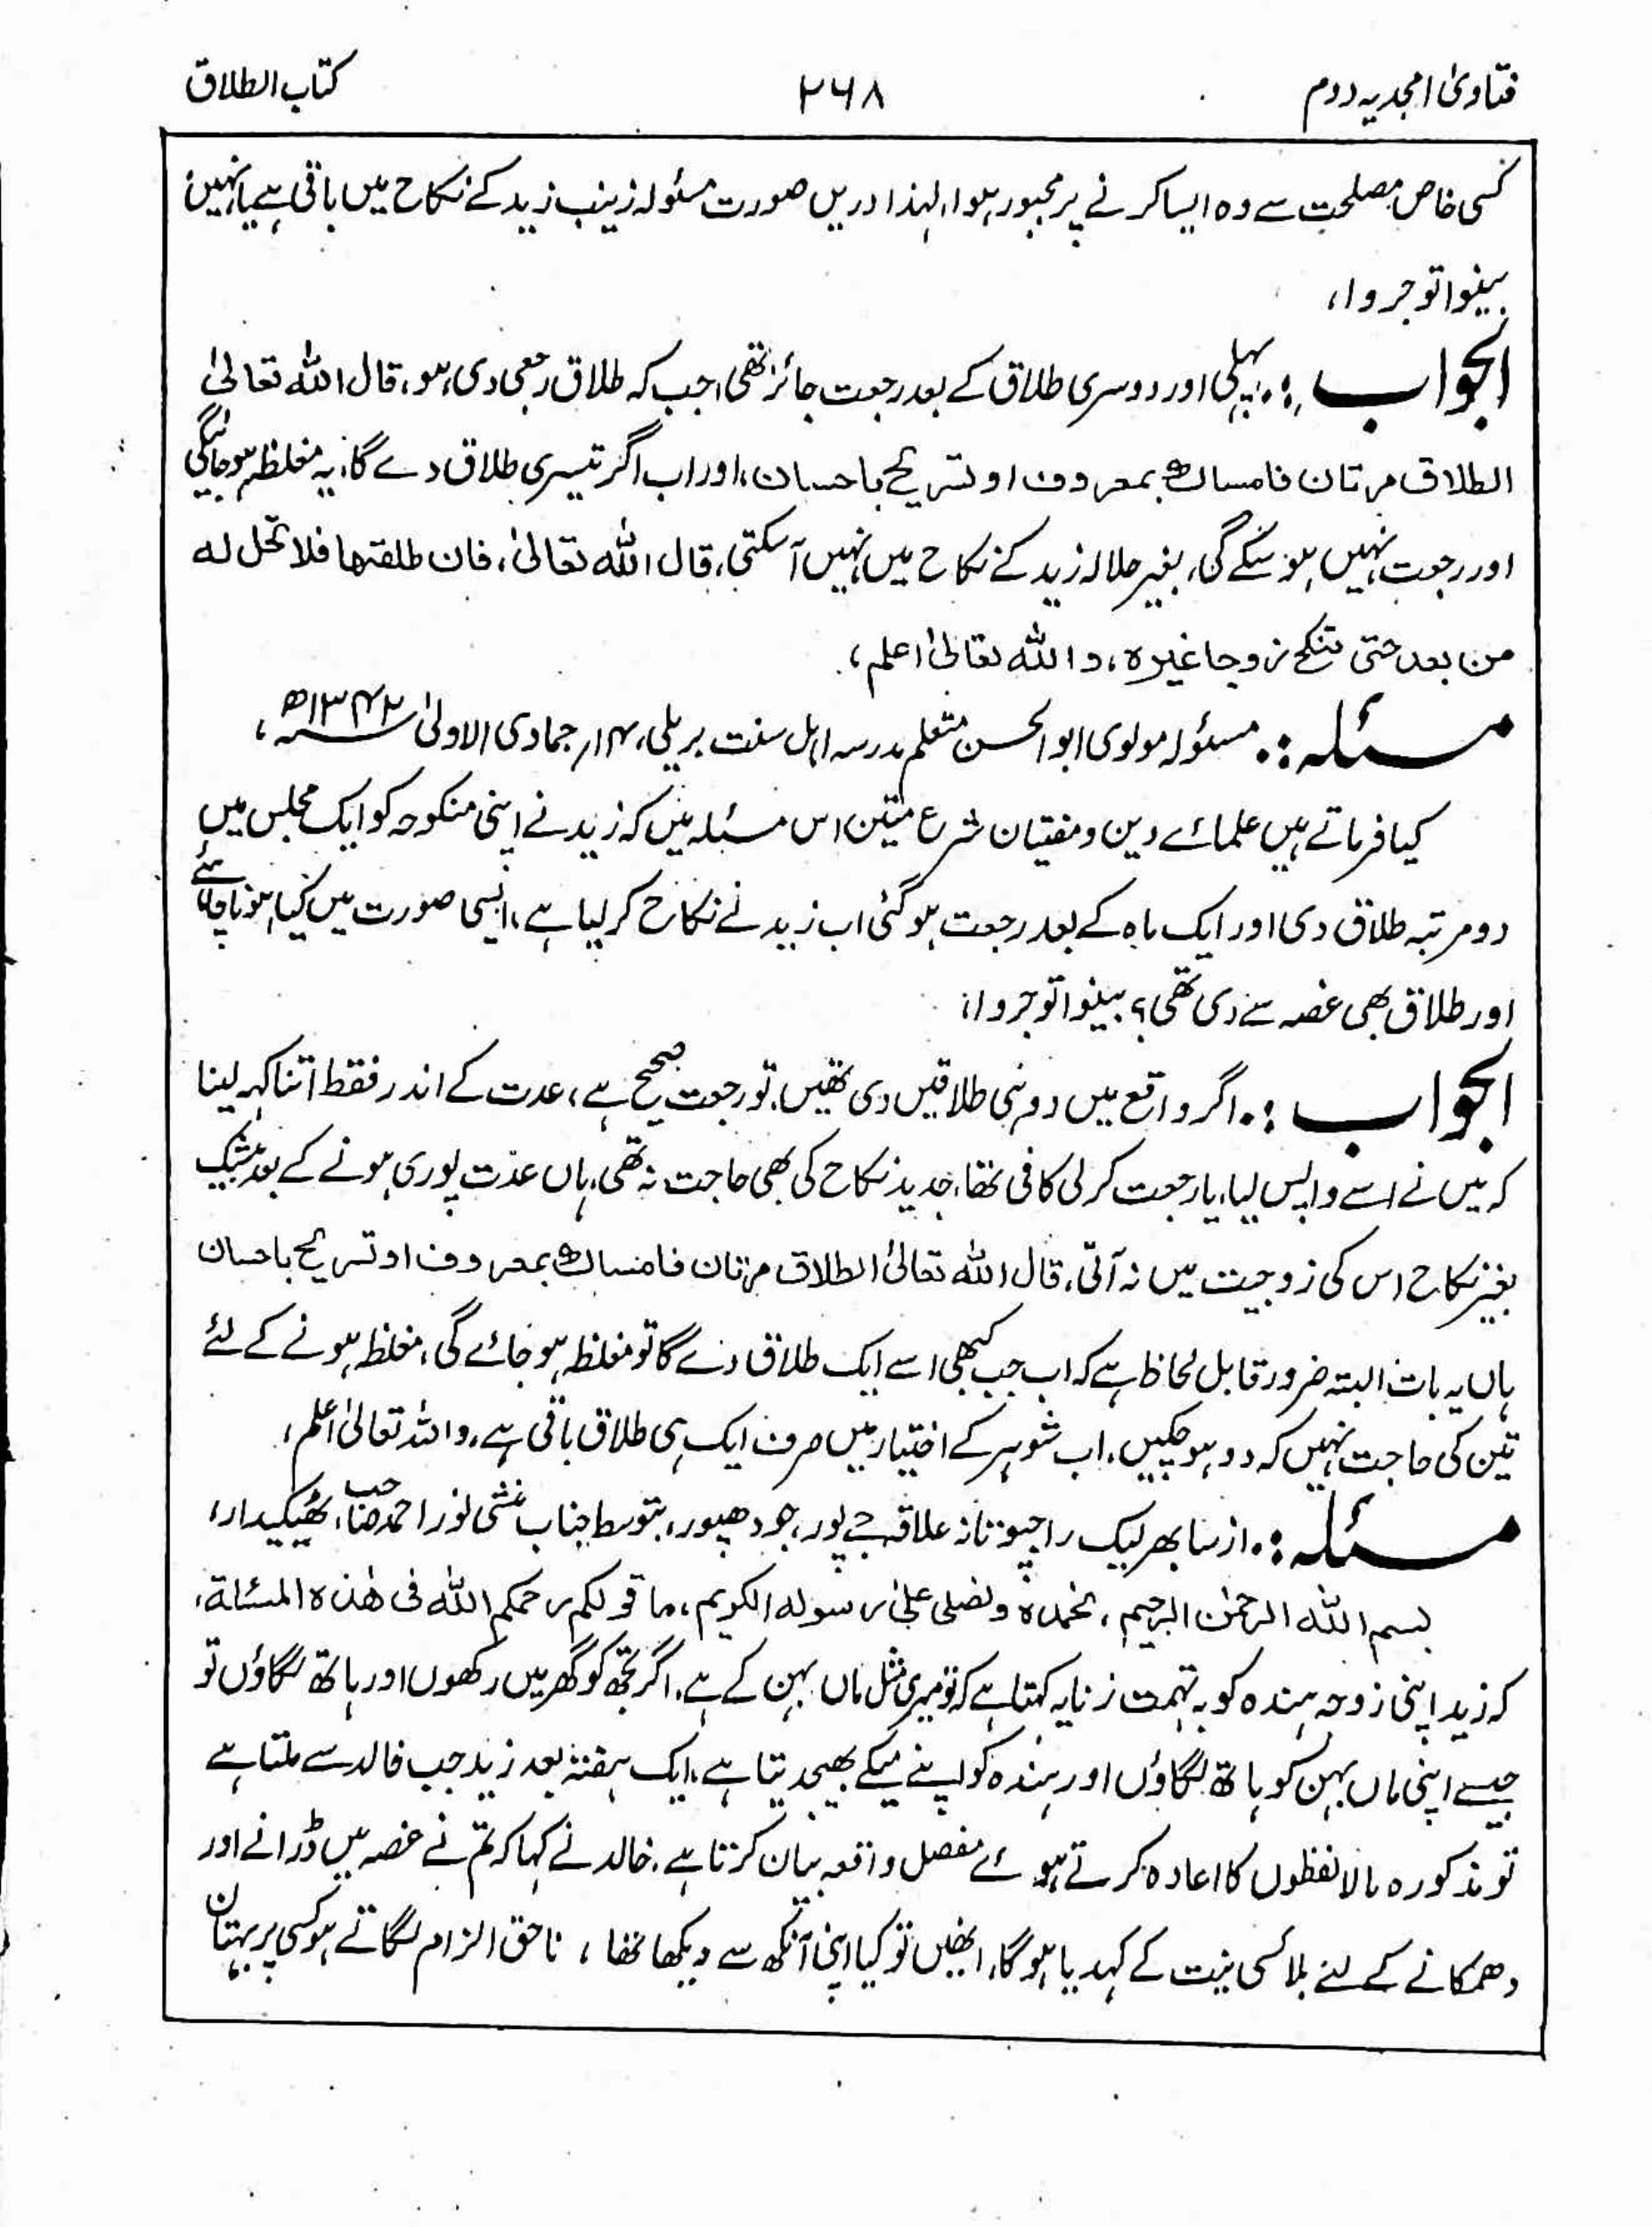 فتاویٰ امجدیہ دوم ۲۶۸ کتاب الطلاق
کسی خاص مصلحت سے وہ ایسا کرنے پر مجبور ہوا، لہٰذا دریں صورت مسئولہ زینب زید کے نکاح میں باقی ہے یا نہیں
بینوا توجروا،
الجواب :۔ پہلی اور دوسری طلاق کے بعد رجعت جائز تھی، جب کہ طلاق رجعی دی ہو، قال اللہ تعالیٰ
الطلاق مرتان فامساك بمعروف او تسریح باحسان، اور اب اگر تیسری طلاق دے گا، یہ مغلظہ ہوجائیگی
اور رجعت نہیں ہو سکے گی، بغیر حلالہ زید کے نکاح میں نہیں آسکتی، قال اللہ تعالیٰ، فان طلقھا فلا تحل له
من بعد حتی تنکح زوجا غیرہ، واللہ تعالیٰ اعلم،
مسئلہ :۔ مسئولہ مولوی ابوالحسن متعلم مدرسہ اہل سنت بریلی، ۱۴؍ جمادی الاولیٰ ۱۳۴۲ھ،
کیا فرماتے ہیں علمائے دین و مفتیان شرع متین اس مسئلہ میں کہ زید نے اپنی منکوحہ کو ایک مجلس میں
دو مرتبہ طلاق دی اور ایک ماہ کے بعد رجعت ہوگئی اب زید نے نکاح کرلیا ہے، ایسی صورت میں کیا ہونا چاہئے
اور طلاق بھی غصہ سے دی تھی؟ بینوا توجروا،
الجواب :۔ اگر واقع میں دو ہی طلاقیں دی تھیں، تو رجعت صحیح ہے، عدت کے اندر فقط اتنا کہہ لینا
کہ میں نے اسے واپس لیا، یا رجعت کرلی کافی تھا، جدید نکاح کی بھی حاجت نہ تھی، ہاں عدت پوری ہونے کے بعد بیشک
بغیر نکاح اس کی زوجیت میں نہ آتی، قال اللہ تعالیٰ الطلاق مرتان فامساك بمعروف او تسریح باحسان
ہاں یہ بات البتہ ضرور قابل لحاظ ہے کہ اب جب کبھی اسے ایک طلاق دے گا تو مغلظہ ہوجائے گی، مغلظہ ہونے کے لئے
تین کی حاجت نہیں کہ دو ہوچکیں، اب شوہر کے اختیار میں صرف ایک ہی طلاق باقی ہے، واللہ تعالیٰ اعلم،
مسئلہ :۔ از سابھر لیک راجپوتانہ علاقہ جے پور، جودھپور، بتوسط جناب منشی نور احمد صاحب، ٹھیکیدار،
بسم اللہ الرحمٰن الرحیم، نحمدہ ونصلی علیٰ رسوله الکریم، ما قولکم رحمکم اللہ فی ھٰذہ المسئلة،
کہ زید اپنی زوجہ ہندہ کو بہ تہمت زنا یہ کہتا ہے کہ تو میری مثل ماں بہن کے ہے، اگر تجھ کو گھر میں رکھوں اور ہاتھ لگاؤں تو
جیسے اپنی ماں بہن کو ہاتھ لگاؤں اور ہندہ کو اپنے میکے بھیجدیتا ہے، ایک ہفتہ بعد زید جب خالد سے ملتا ہے
تو مذکورہ بالا لفظوں کا اعادہ کرتے ہوئے مفصل واقعہ بیان کرتا ہے، خالد نے کہا کہ تم نے غصہ میں ڈرانے اور
دھمکانے کے لئے بلا کسی نیت کے کہدیا ہوگا، انھیں تو کیا اپنی آنکھ سے دیکھا تھا، ناحق الزام لگاتے ہو کسی پر بہتان